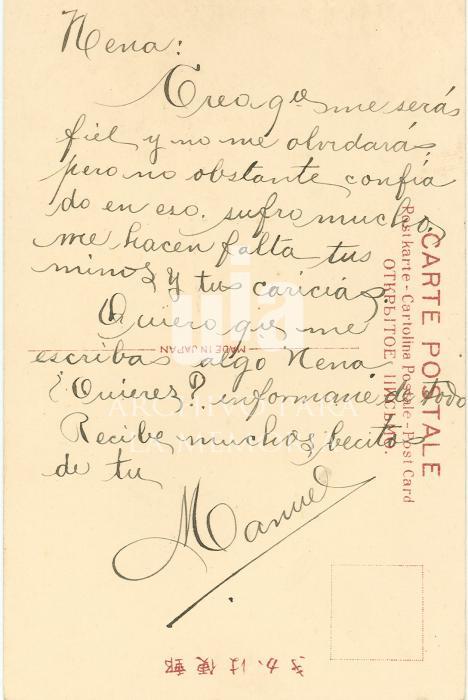 Nena:
Creo que me serás
fiel y no me olvidarás,
pero no obstante confia
do en eso, sufro mucho,
me hacen falta tus
mimos y tus caricias.
Quiero que me
escribas algo Nena.
¿Quieres? informame de todo
Recibe muchos becitos
de tu
Manuel
CARTE POSTALE
Postkarte - Cartolina Postale - Post Card
ОТКРЫТОЕ ПИСЬМО.
MADE IN JAPAN
きかは便郵
uia
ARCHIVO PARA
LA MEMORIA